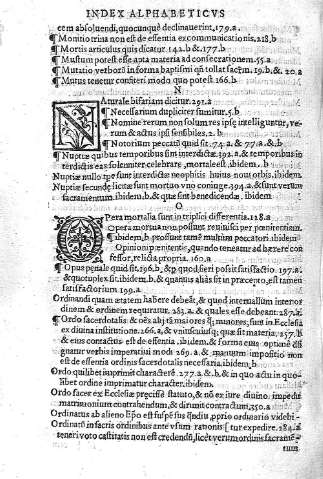 INDEX ALPHABETICVS
tem absoluendi, quocunque declinauerint. 179.a.
¶ Monitio trina non est de essentia excommunicationis. 218.b
¶ Mortis articulus quis dicatur. 142.b & 177.b
¶ Mustum potest esse apta materia ad consecrationem. 55.a
¶ Mutatio verborū in forma baptismi quā tollat sacrm̄. 19.b. & 20.a
¶ Mutus tenetur confiteri modo quo potest. 166.b
N
NAturale bifariam dicitur. 291.a
¶ Necessarium dupliciter sumitur. 5.b
¶ Nomine rerum non solum res ipsę intelliguntur, re-
rum & actus ipsi sensibiles. 2.b
¶ Notorium peccatū quid sit. 74.a. & 77.a. & .b
¶ Nuptiæ quibus temporibus sint interdictæ. 292.a. & temporibus in
interdictis eas solenniter celebrare, mortale est. ibidem .b
Nuptiæ nullo tp̄e sunt interdictæ neophitis huius noui orbis. ibidem.
Nuptiæ secundę licitæ sunt mortuo vno coniuge. 294.a. & sunt verum
sacramentum. ibidem.b. & quæ sint benedicendæ. ibidem
O
OPera mortalia sunt in triplici differentia. 128.a
Opera mortua non possunt reuiuisci per pœnitentiam.
¶ ibidem.b prosunt tamē multum peccatori. ibidem
Opinioni pœnitentis, quando teneatur adhærere con
fessor, relicta propria. 160.a
¶ Opus penale quid sit. 196.b. & p quod fieri possit satisfactio. 197.a.
& quotuplex sit. ibidem.b. & quamuis aliâs sit in præcepto, est tamen
satisfactorium. 199.a.
Ordinandi quam ætatem habere debeāt, & quod interuallum interior
dinem & ordinem requiratur. 283.a. & quales esse debeant. 287.a.
¶ Ordo sacerdotalis & oēs alij tā maiores q̃; minores, sunt in Ecclesia
ex diuina institutione. 266.a. & vniuscuiusq; quæ sit materia. 257.b
& eius contactus est de essentia. ibidem. & forma eius optione ēsi
gnatur verbis imperatiui modi. 269.a. & manuum impositio non
est de essentia ordinis sacerdotalis necessaria. ibidem.b
Ordo quilibet imprimit characterē. 277.a. & .b. & in quo actu in quo-
libet ordine imprimatur character. ibidem.
Ordo sacer ex Ecclesiæ præcisse statuto, & nō ex iure diuino, impedit
matrimonium contrahendum, & dirimit contractum. 350.a
Ordinatus ab alieno Ep̄o est suspēsus q̄ndiu, pprio ordinario videbi-
Ordinatū in sacris ordinibus ante vsum rationis [tur expedire. 284.a
teneri voto castitatis non est credendū, licèt verum ordinis sacramē-